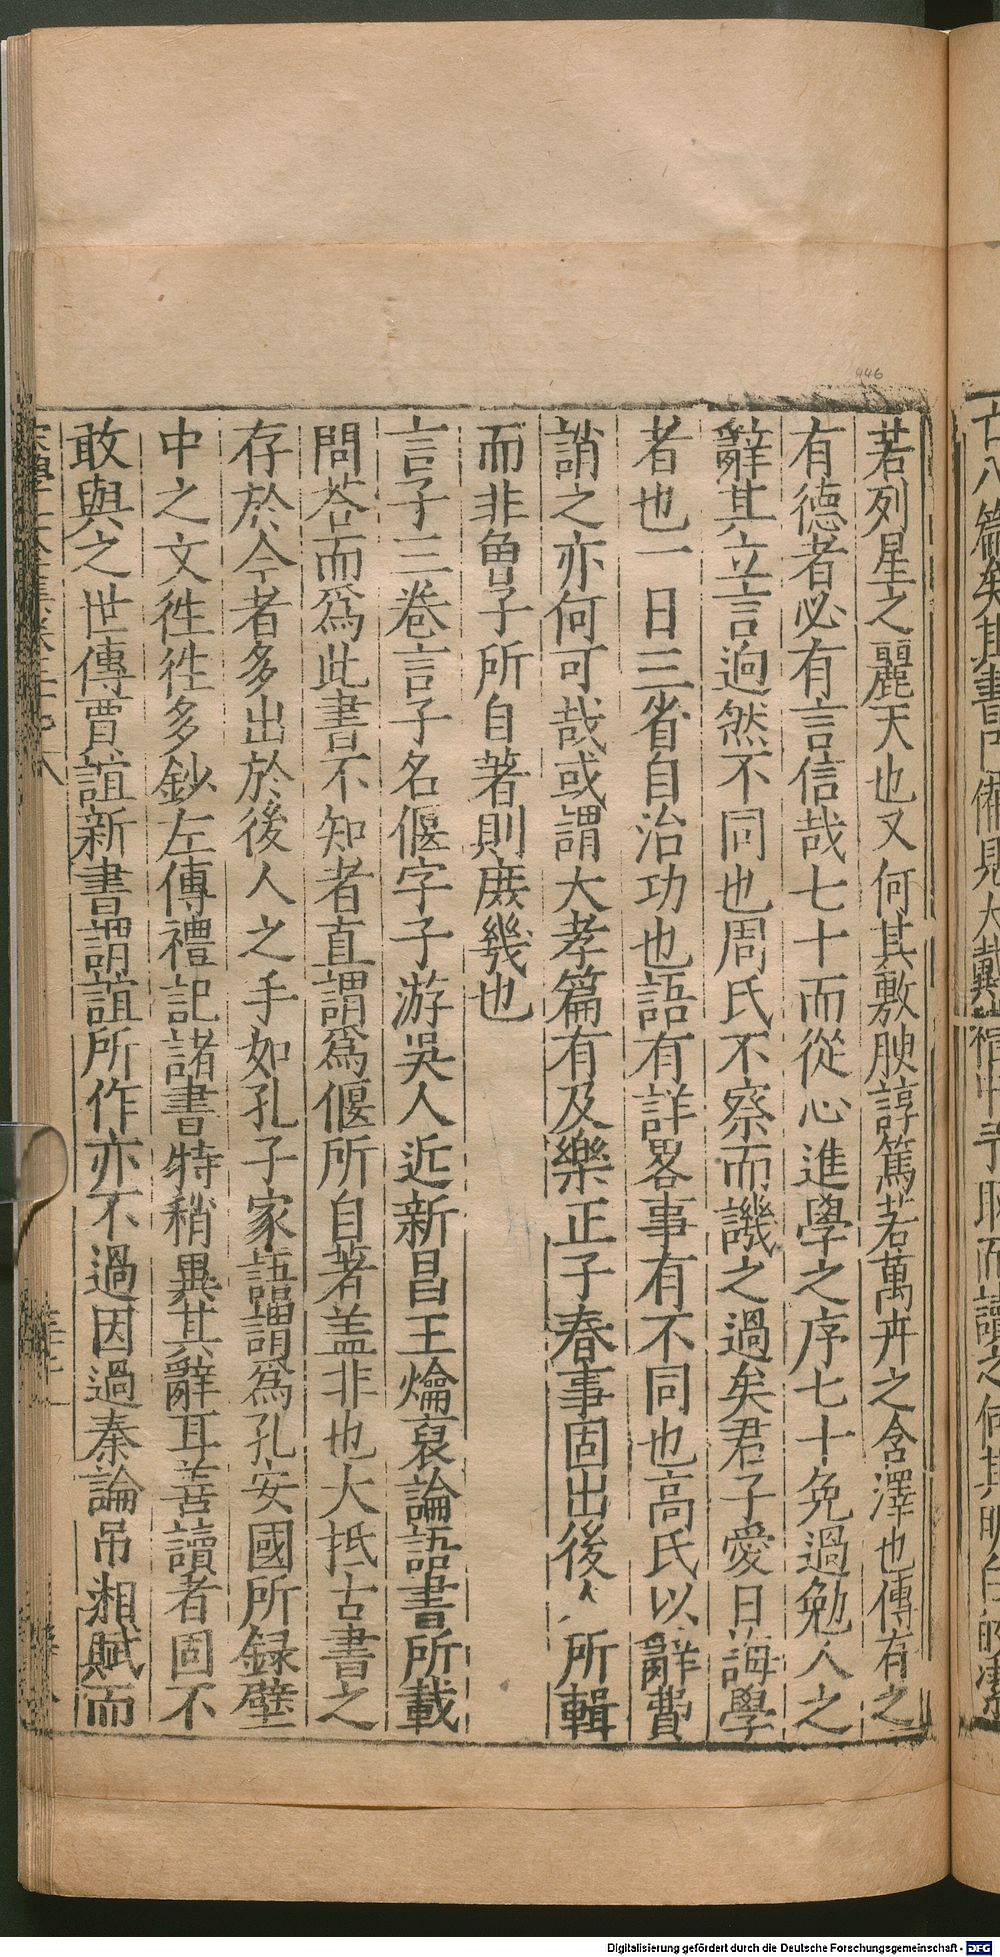 若列星之麗天也又何其敷腴諄篤若萬卉之含澤也傳有之
有德者必有言信哉七十而從心進學之序七十免過勉人之
辭其立言逈然不同也周氏不察而譏之過矣君子愛日誨學
者也一日三省自治功也語有詳畧事有不同也高氏以辭費
誚之亦何可哉或謂大孝篇有及樂正子春事固出後人所輯
而非曾子所自著則庶幾也
言子三卷言子名偃字子游吳人近新昌王爚裒論語書所載
問荅而爲此書不知者直謂爲偃所自著盖非也大抵古書之
存於今者多出於後人之手如孔子家語謂爲孔安國所録壁
中之文徃徃多鈔左傳禮記諸書特稍異其辭耳善讀者固不
敢與之世傳賈誼新書謂誼所作亦不過因過秦論吊湘賦而
446
Digitalisierung gefördert durch die Deutsche Forschungsgemeinschaft - DFG